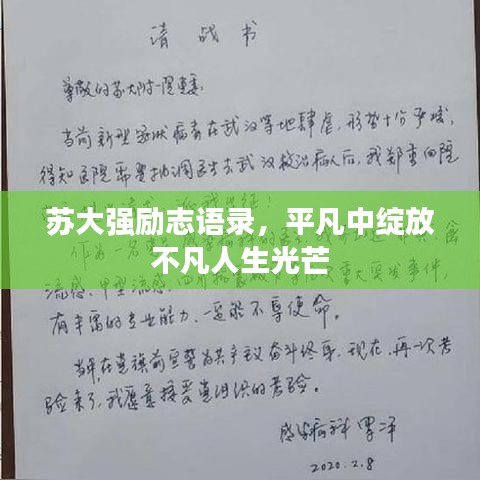 请战书
尊敬的苏大附一院党委:
当前新型冠状病毒在武汉等地肆虐,形势十分严峻,
得知医院需要抽调医生去武汉救治病人后,我郑重向院
苏大强励志语录,平凡中绽放
不凡人生光芒
流感、甲型流感、
突发事件,
有丰富的专业能力,一定能不辱使命。
当年在党旗前宣誓为共产主义奋斗终身,现在,再一次考
验来了,我愿意接受党组织的考验。
感染病科
2020.2.8